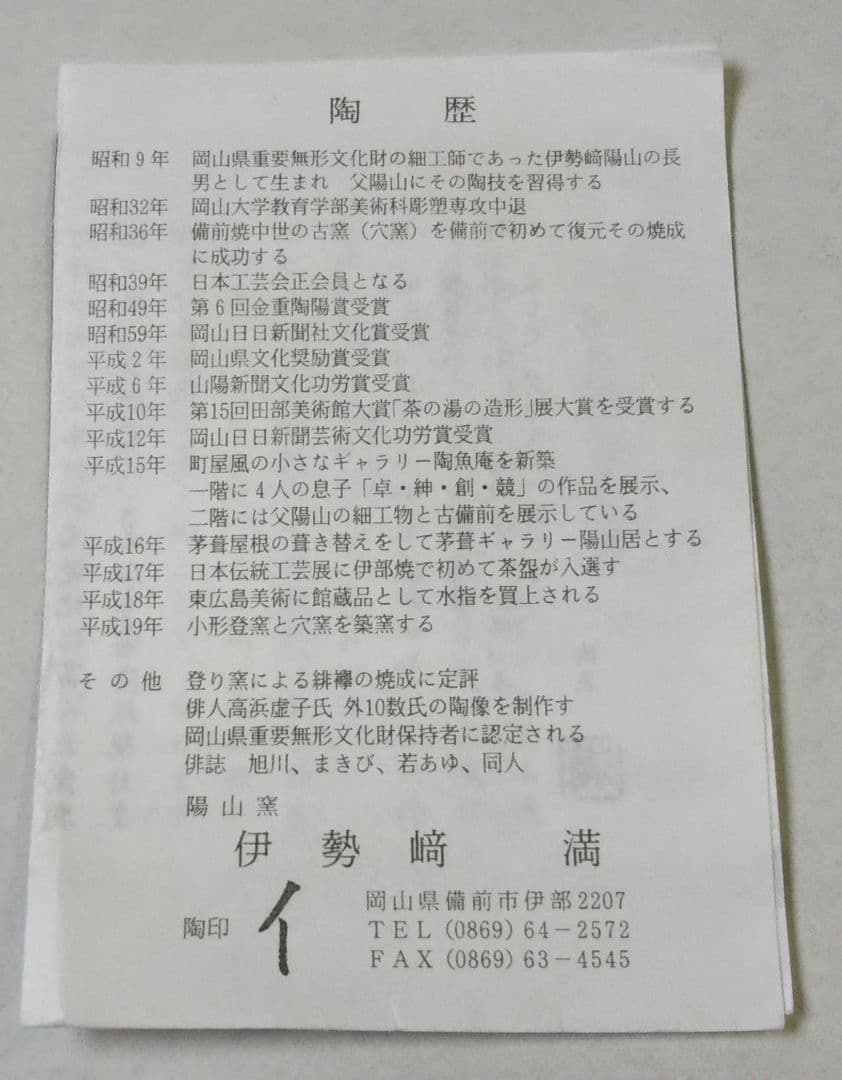 陶歴
昭和9年 岡山県重要無形文化財の細工師であった伊勢﨑陽山の長
男として生まれ 父陽山にその陶技を習得する
昭和32年 岡山大学教育学部美術科彫塑専攻中退
昭和36年 備前焼中世の古窯（穴窯）を備前で初めて復元その焼成
に成功する
昭和39年 日本工芸会正会員となる
昭和49年 第6回金重陶陽賞受賞
昭和59年 岡山日日新聞社文化賞受賞
平成2年 岡山県文化奨励賞受賞
平成6年 山陽新聞文化功労賞受賞
平成10年 第15回田部美術館大賞「茶の湯の造形」展大賞を受賞する
平成12年 岡山日日新聞芸術文化功労賞受賞
平成15年 町屋風の小さなギャラリー陶魚庵を新築
一階に4人の息子「卓・紳・創・競」の作品を展示、
二階には父陽山の細工物と古備前を展示している
平成16年 茅葺屋根の葺き替えをして茅葺ギャラリー陽山居とする
平成17年 日本伝統工芸展に伊部焼で初めて茶盌が入選す
平成18年 東広島美術に館蔵品として水指を買上される
平成19年 小形登窯と穴窯を築窯する
その他 登り窯による緋襷の焼成に定評
俳人高浜虚子氏 外10数氏の陶像を制作す
岡山県重要無形文化財保持者に認定される
俳誌 旭川、まきび、若あゆ、同人
陽山窯
伊勢﨑 満
陶印 イ
岡山県備前市伊部2207
TEL (0869) 64－2572
FAX (0869) 63－4545